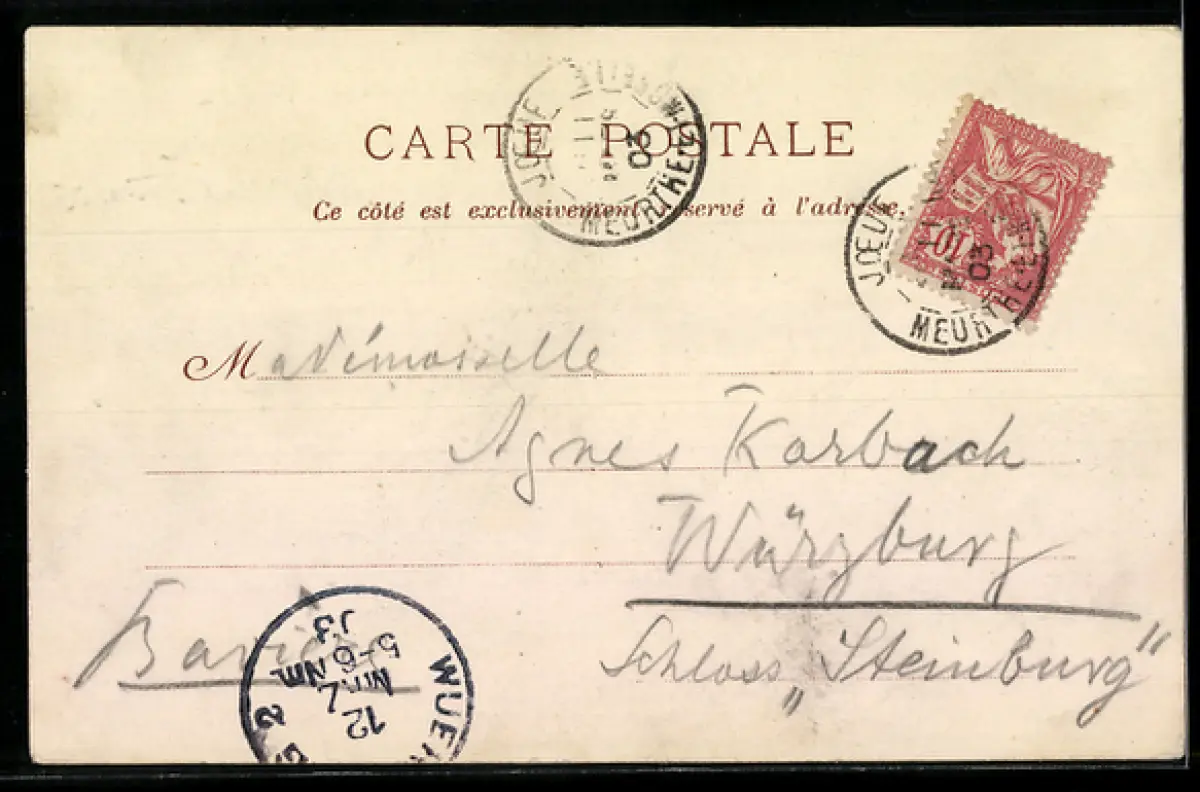 CARTE POSTALE
Ce côté est exclusivement réservé à l'adresse.
JŒUF
MEURTHE-ET-MOSELLE
03
10
JŒUF
MEURTHE-ET
03
Mademoiselle
Agnes Karbach
Würzburg
Schloss „Steinburg"
Bavière
WUER
12
5-6 Nm.
2